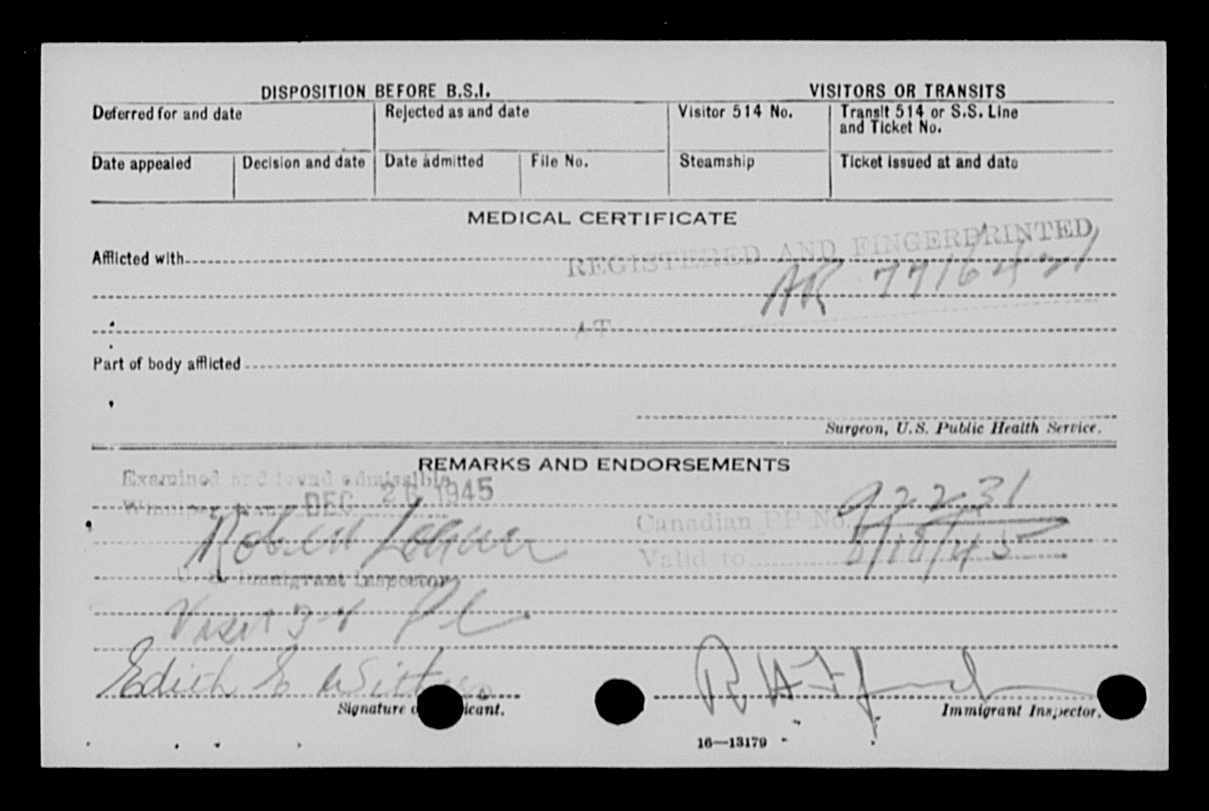 DISPOSITION BEFORE B.S.I. VISITORS OR TRANSITS
Deferred for and date Rejected as and date Visitor 514 No. Transit 514 or S.S. Line
and Ticket No.
Date appealed Decision and date Date admitted File No. Steamship Ticket issued at and date
MEDICAL CERTIFICATE
REGISTERED AND FINGERPRINTED
Afflicted with
AR
AT
Part of body afflicted
Surgeon, U.S. Public Health Service.
REMARKS AND ENDORSEMENTS
Examined and found admissible
DEC 26 1945
92231
Robert Logan Canadian PP No.
Valid to 8/18/45
U. S. Immigrant Inspector
Visit
Edith E
Signature of Applicant. Immigrant Inspector.
16—13179